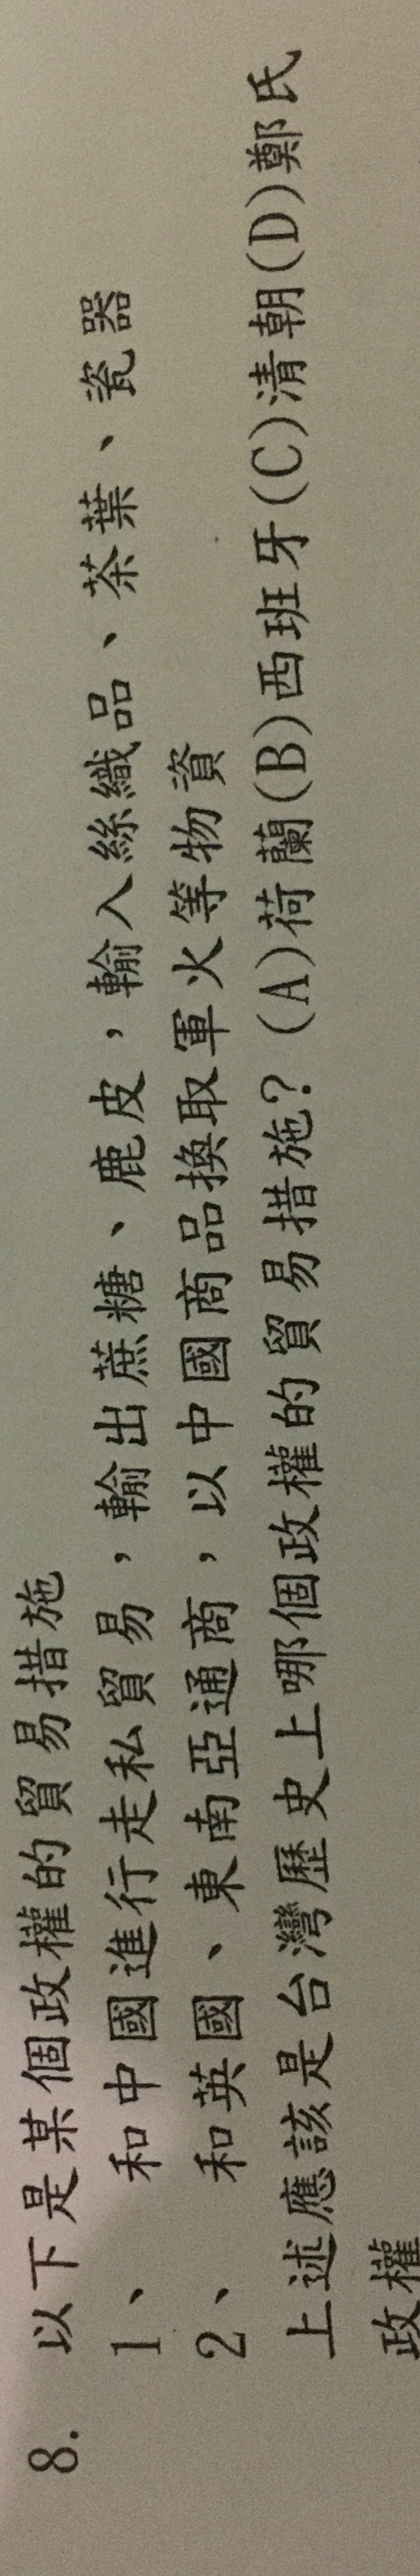 8. 以下是某個政權的貿易措施
1、 和中國進行走私貿易，輸出蔗糖、鹿皮，輸入絲織品、茶葉、瓷器
2、 和英國、東南亞通商，以中國商品換取軍火等物資
上述應該是台灣歷史上哪個政權的貿易措施？(A)荷蘭(B)西班牙(C)清朝(D)鄭氏
政權